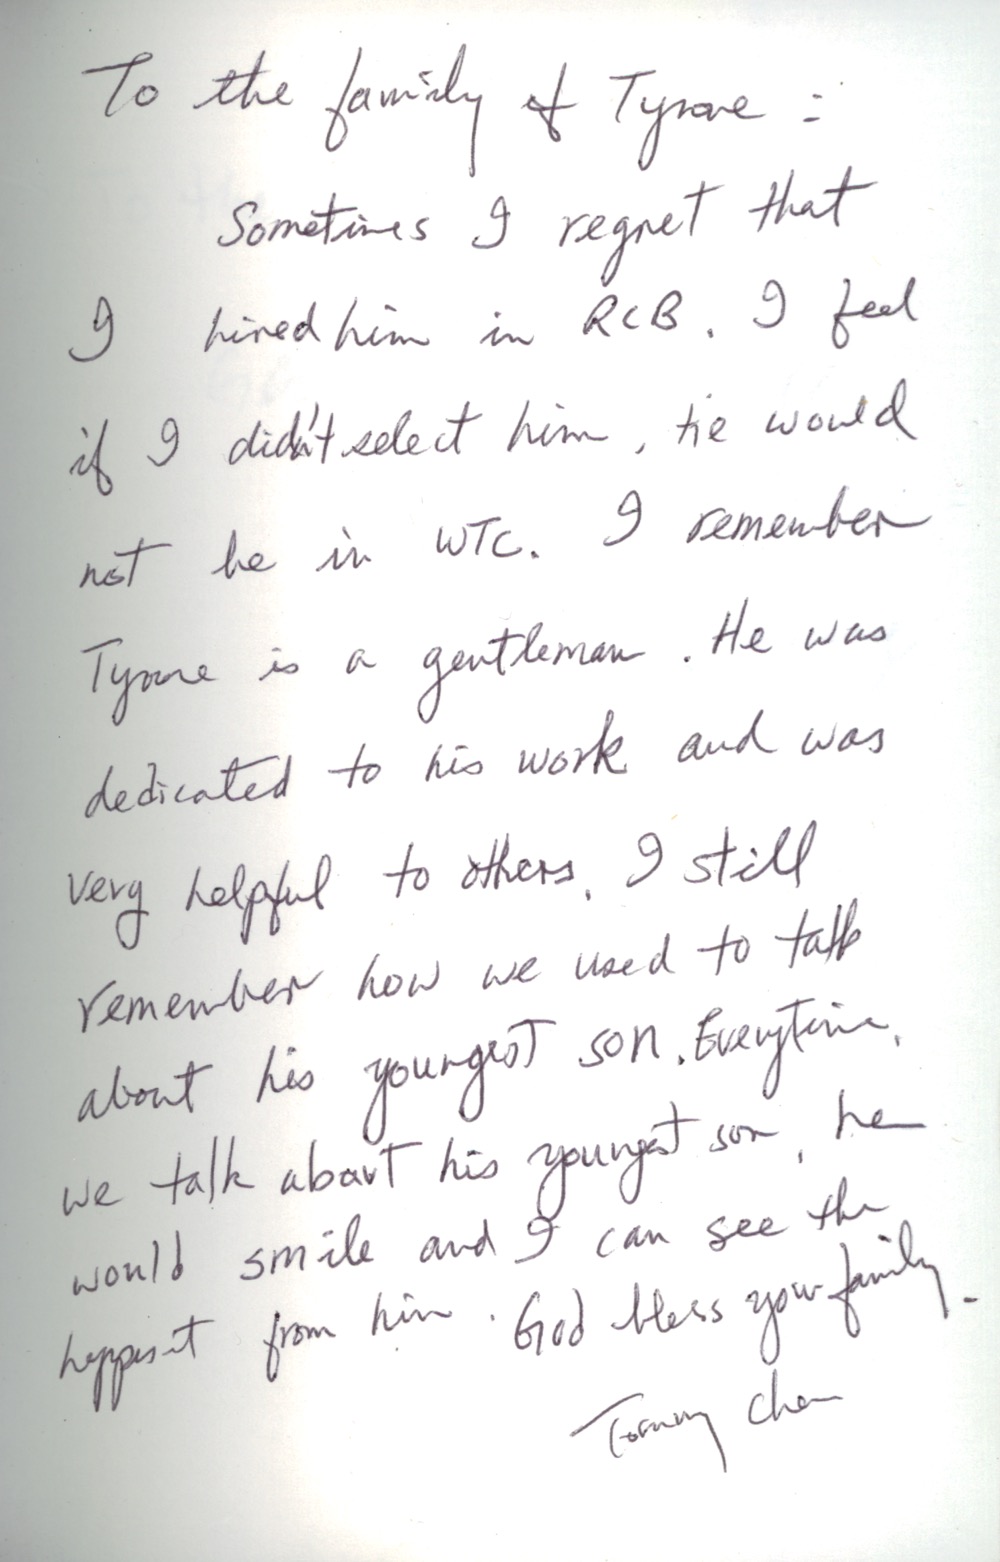 To the family of Tyrone :
Sometimes I regret that
I hired him in RCB. I feel
if I didn't select him, He would
not be in WTC. I remember
Tyrone is a gentleman. He was
dedicated to his work and was
very helpful to others. I still
remember how we used to talk
about his youngest son. Everytime,
we talk about his youngest son, he
would smile and I can see the
from him. God bless your family.
Tommy